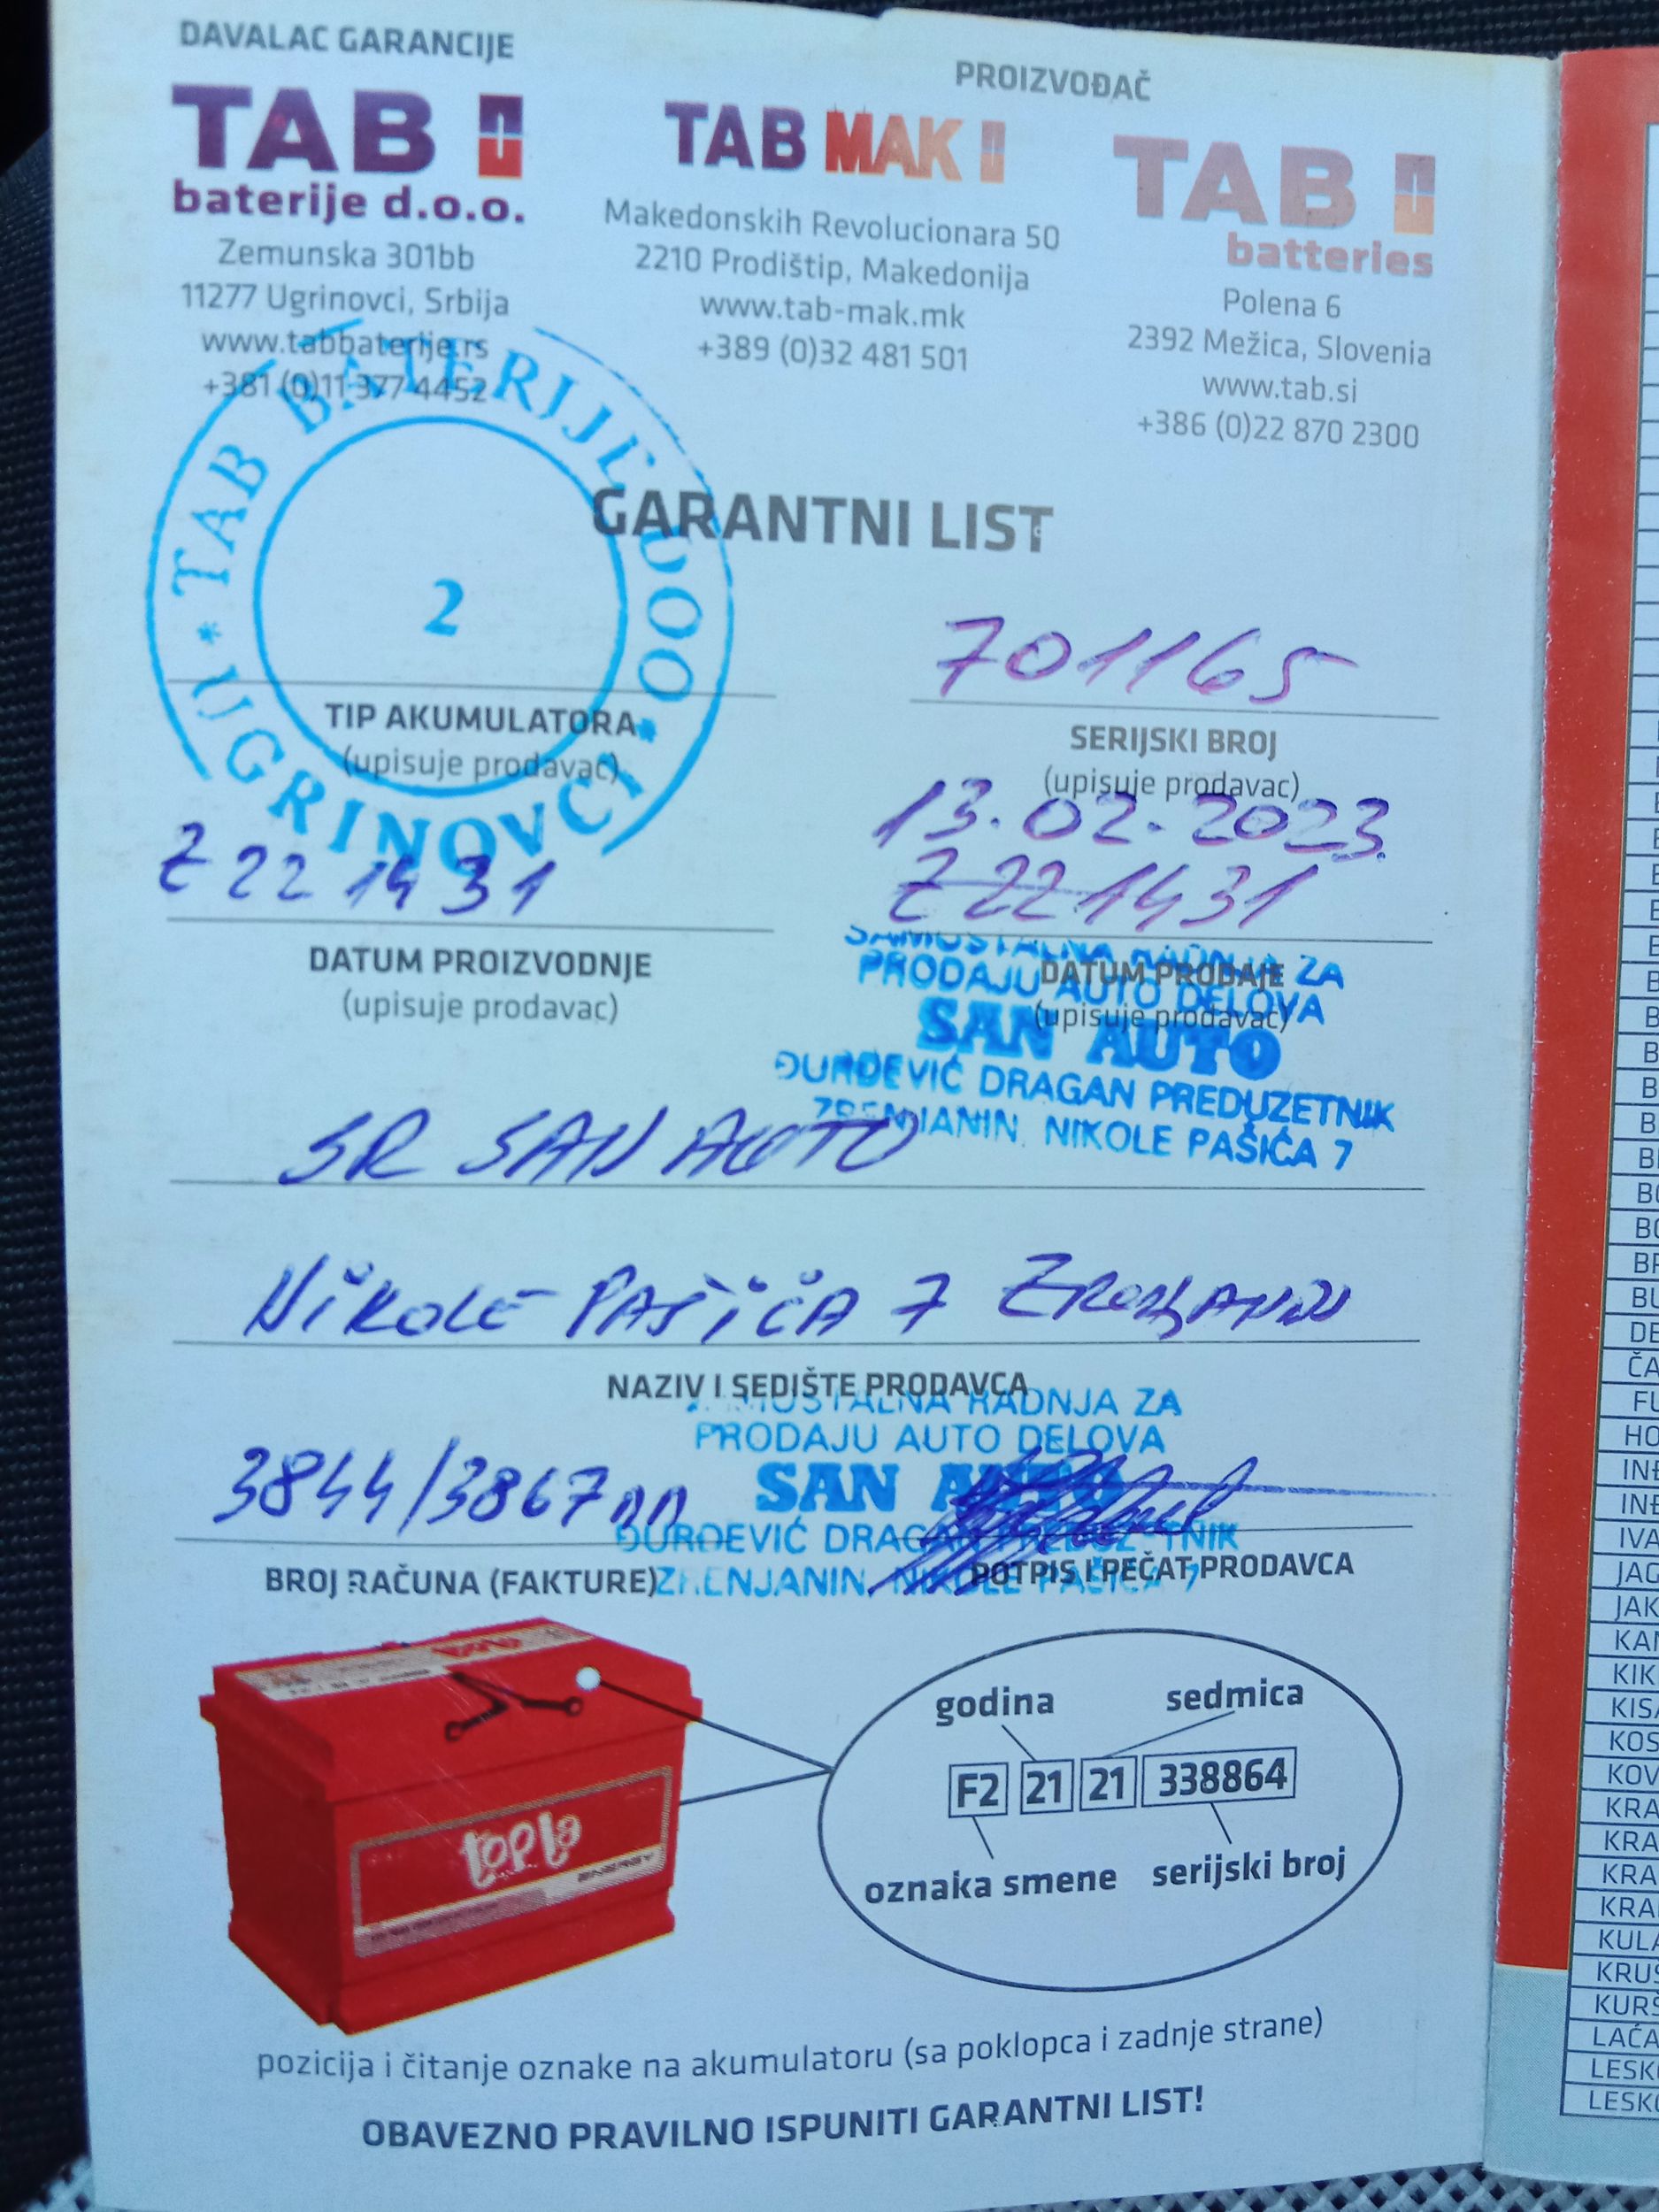 DAVALAC GARANCIJE
TAB
baterije d.o.o.
Zemunska 301bb
11277 Ugrinovci, Srbija
www.tabbaterije.rs
+381 (0)11 377 4452
PROIZVOĐAČ
TAB MAK
Makedonskih Revolucionara 50
2210 Prodištip, Makedonija
www.tab-mak.mk
+389 (0)32 481 501
TAB
batteries
Polena 6
2392 Mežica, Slovenia
www.tab.si
+386 (0)22 870 2300
TAB BATERIJE DOO
UGRINOVCI
2
GARANTNI LIST
701165
TIP AKUMULATORA
(upisuje prodavac)
SERIJSKI BROJ
(upisuje prodavac)
Z 22 14 31
13.02.2023.
Z 22 14 31
DATUM PROIZVODNJE
(upisuje prodavac)
DATUM PRODAJE
(upisuje prodavac)
SAMOSTALNA RADNJA ZA
PRODAJU AUTO DELOVA
SAN AUTO
ĐURĐEVIĆ DRAGAN PREDUZETNIK
ZRENJANIN, NIKOLE PAŠIĆA 7
SR SAN AUTO
NIKOLE PAŠIĆA 7
NAZIV I SEDIŠTE PRODAVCA
SAMOSTALNA RADNJA ZA
PRODAJU AUTO DELOVA
SAN AUTO
ĐURĐEVIĆ DRAGAN PREDUZETNIK
ZRENJANIN, NIKOLE PAŠIĆA 7
3844/3867
BROJ RAČUNA (FAKTURE)
POTPIS I PEČAT PRODAVCA
godina
sedmica
F2 21 21 338864
oznaka smene
serijski broj
topla
ENERGY
pozicija i čitanje oznake na akumulatoru (sa poklopca i zadnje strane)
OBAVEZNO PRAVILNO ISPUNITI GARANTNI LIST!